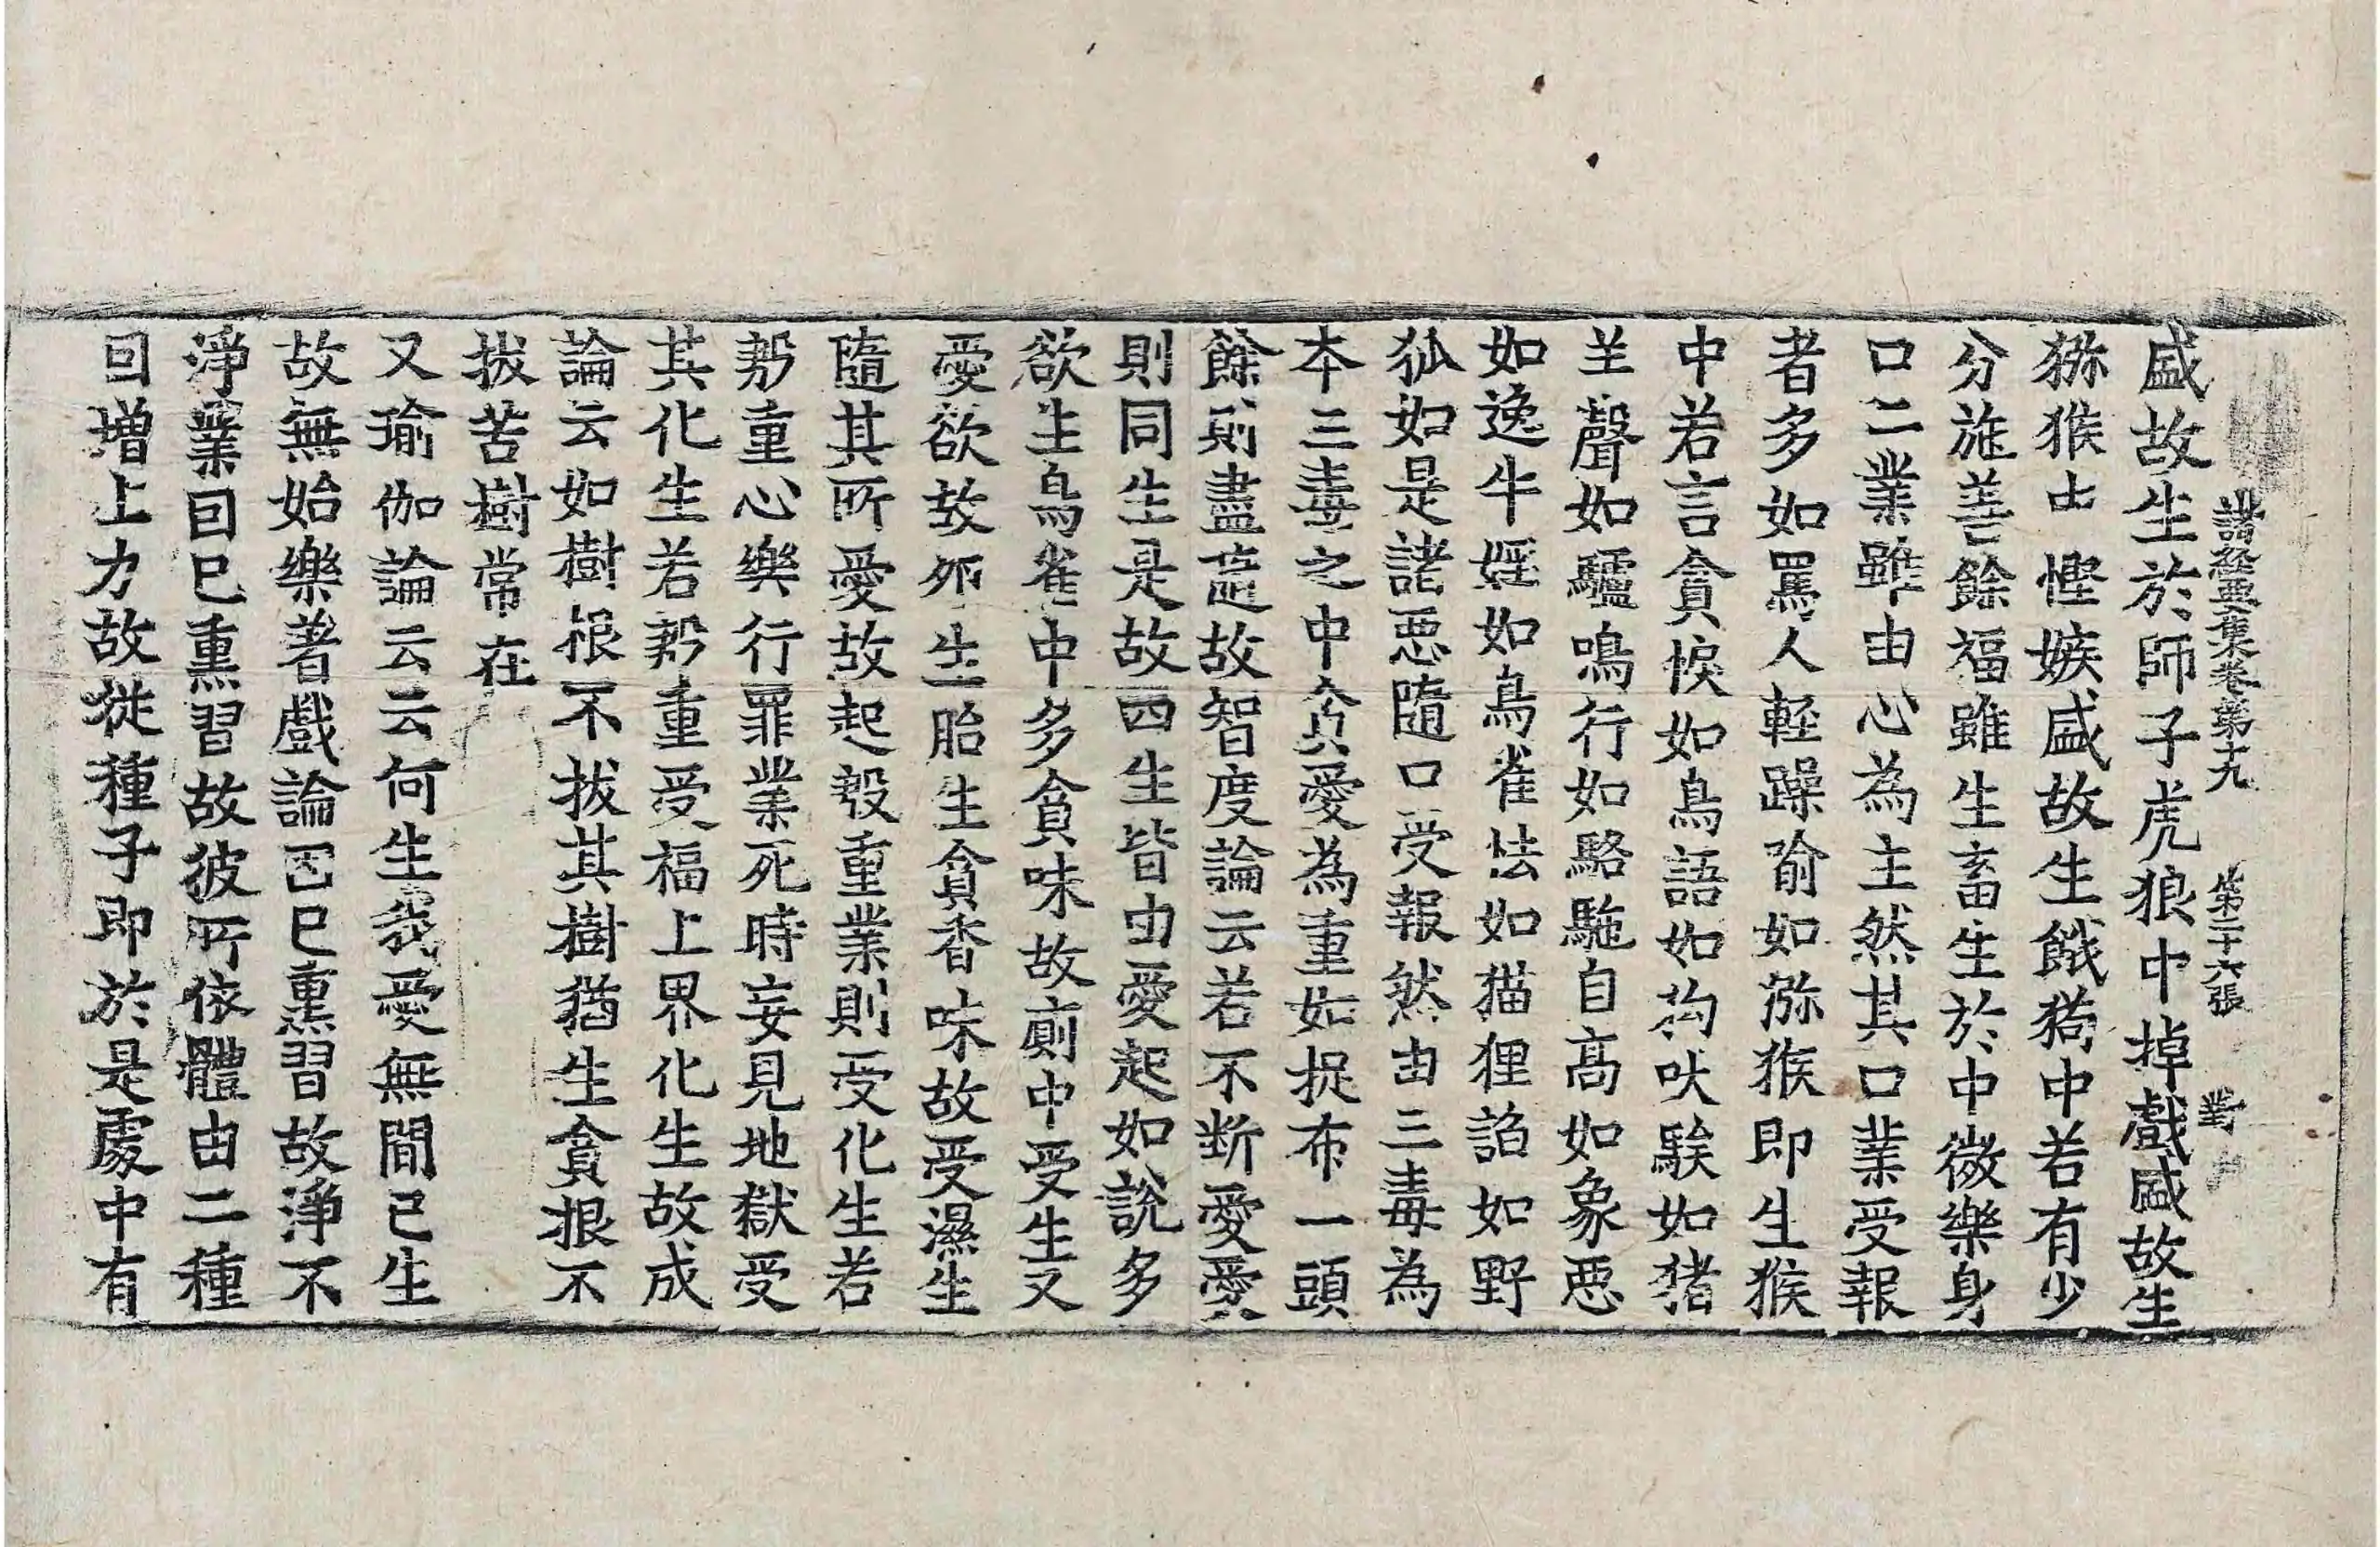 諸經要集卷第十九 第二十六張 對
盛故生於師子虎狼中掉戲盛故生
猕猴中慳嫉盛故生餓狗中若有少
分施善餘福雖生畜生於中微樂身
口二業雖由心為主然其口業受報
者多如罵人軽躁喻如猕猴即生猴
中若言貪悷如鳥語如狗吠騃如猪
羊聲如驢鳴行如駱駞自高如象惡
如逸牛婬如鳥雀怯如猫狸諂如野
狐如是諸惡隨口受報然由三毒為
本三毒之中貪愛為重如捉布一頭
餘則盡隨故智度論云若不断愛愛
則同生是故四生皆由愛起如說多
欲生鳥雀中多貪味故廁中受生又
愛欲故夘生胎生貪香味故受濕生
隨其所愛故起殷重業則受化生若
殷重心樂行罪業死時妄見地獄受
其化生若殷重受福上界化生故成
論云如樹根不拔其樹猶生貪根不
拔苦樹常在
又瑜伽論云云何生我愛無間已生
故無始樂著戲論因已熏習故淨不
淨業因已熏習故彼所依體由二種
因增上力故從種子即於是處中有